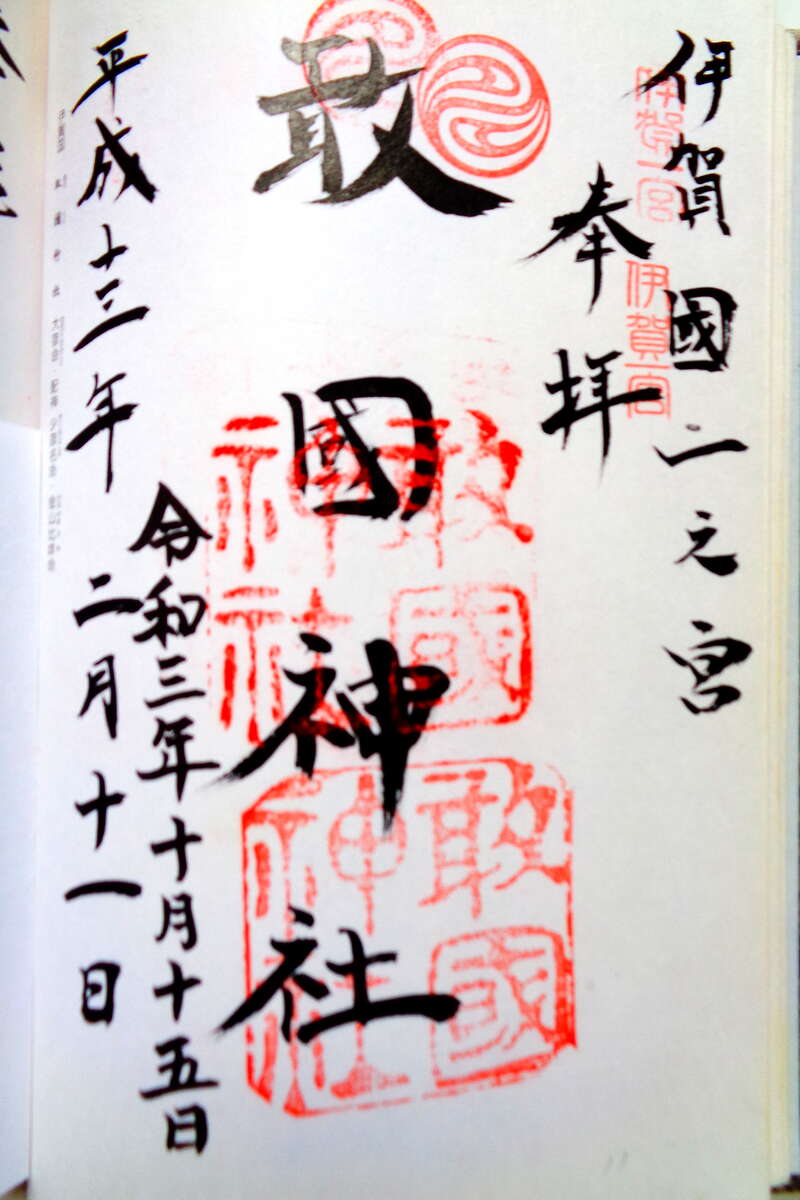 伊賀國一之宮
伊賀一宮
伊賀一宮
奉拝
敢國神社
敢國神社
敢國神社
令和三年十月十五日
平成十三年二月十一日